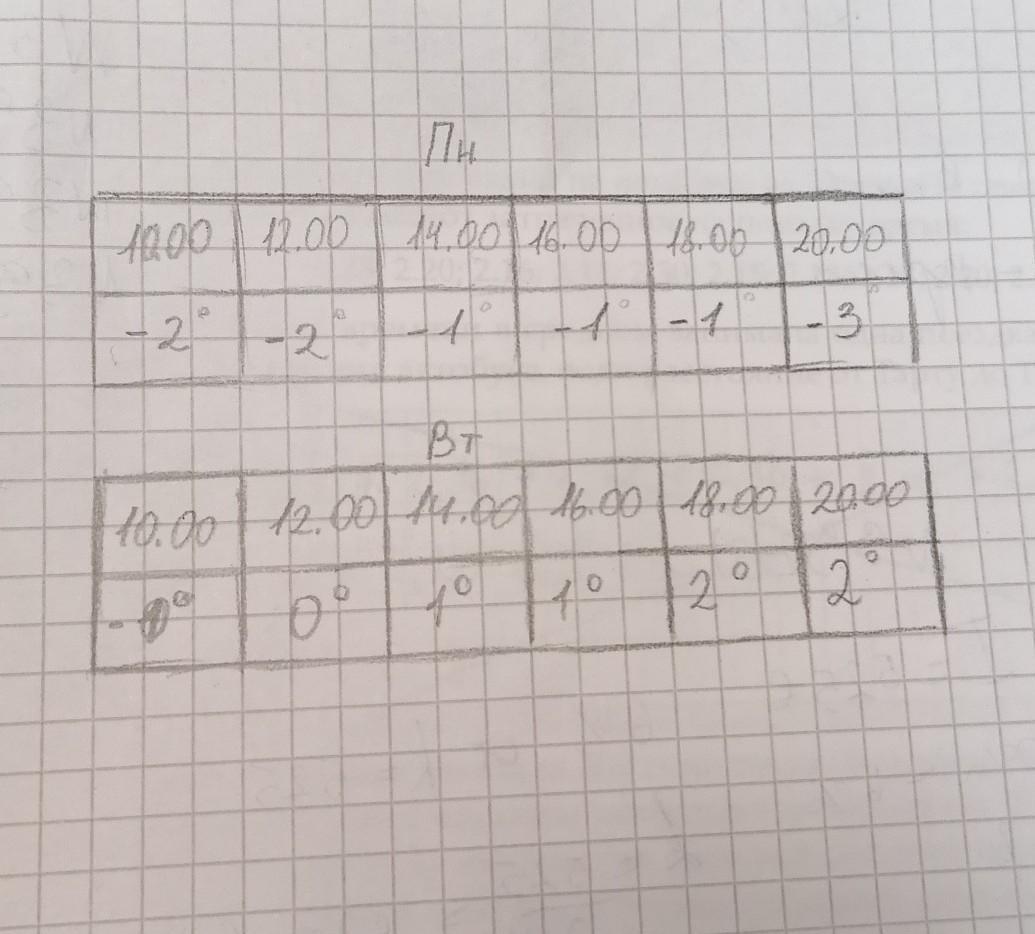 Пн
10.00 12.00 14.00 16.00 18.00 20.00
-2° -2° -1° -1° -1° -3°
Вт
10.00 12.00 14.00 16.00 18.00 20.00
0° 1° 1° 2° 2°